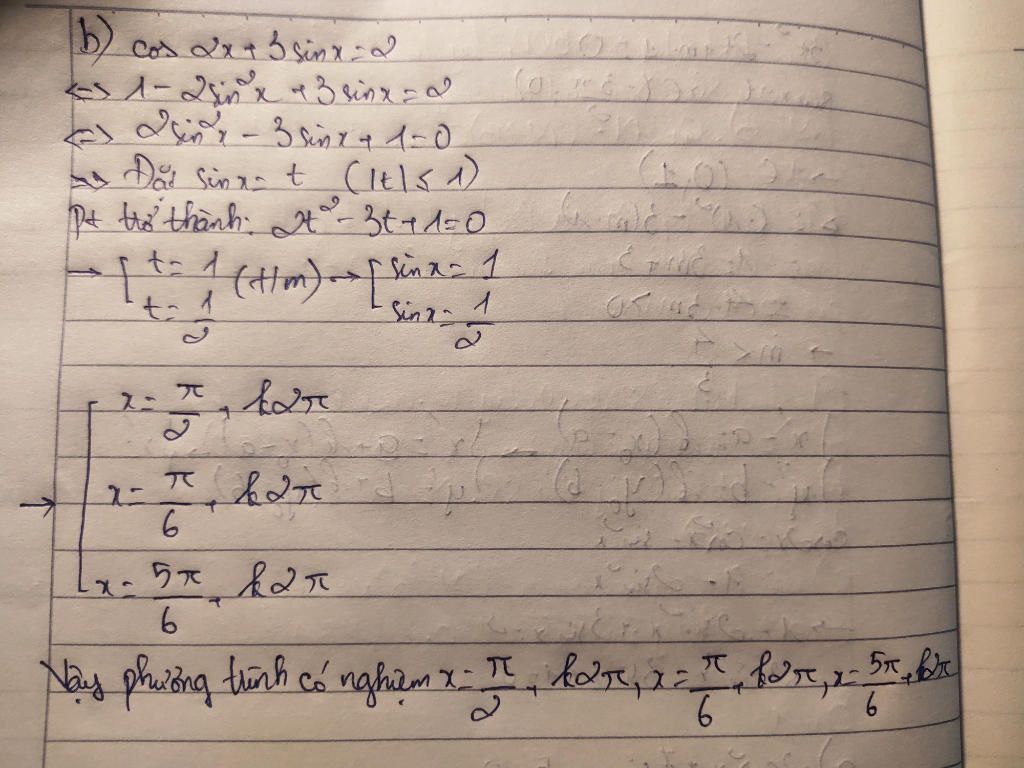 b) cos 2x + 3 sin x = 2
<=> 1 - 2sin²x + 3 sin x = 2
<=> 2sin²x - 3 sin x + 1 = 0
=> Đặt sin x = t (|t| ≤ 1)
Pt trở thành: 2t² - 3t + 1 = 0
→ [ t = 1 (t/m) → [ sin x = 1
t = 1/2 sin x = 1/2
x = π/2 + k2π
→ [ x = π/6 + k2π
x = 5π/6 + k2π
Vậy phương trình có nghiệm x = π/2 + k2π, x = π/6 + k2π, x = 5π/6 + k2π